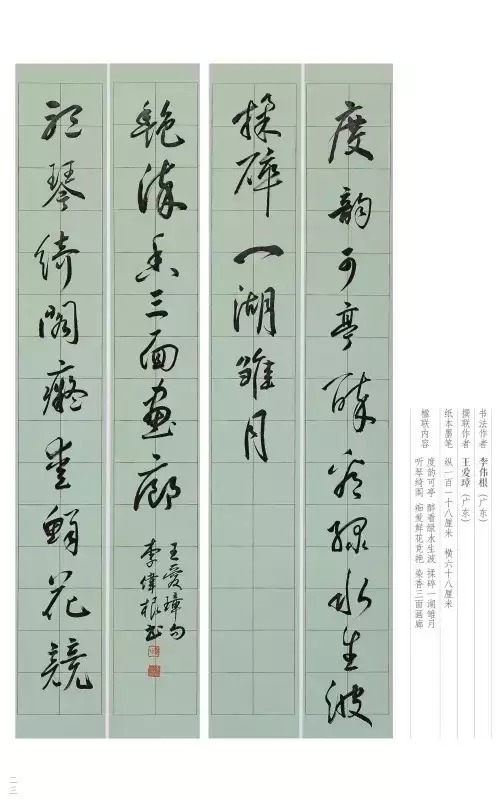 度韵可亭醉看绿水生波
揉碎一湖雏月
听琴绮阁痴爱鲜花竞
艳染香三面画廊
王愛璋句
李偉根书
书法作者 李伟根（广东）
撰联作者 王爱璋（广东）
纸本墨笔 纵一百一十八厘米 横六十八厘米
楹联内容 度韵可亭 醉看绿水生波 揉碎一湖雏月
听琴绮阁 痴爱鲜花竞艳 染香三面画廊
二三